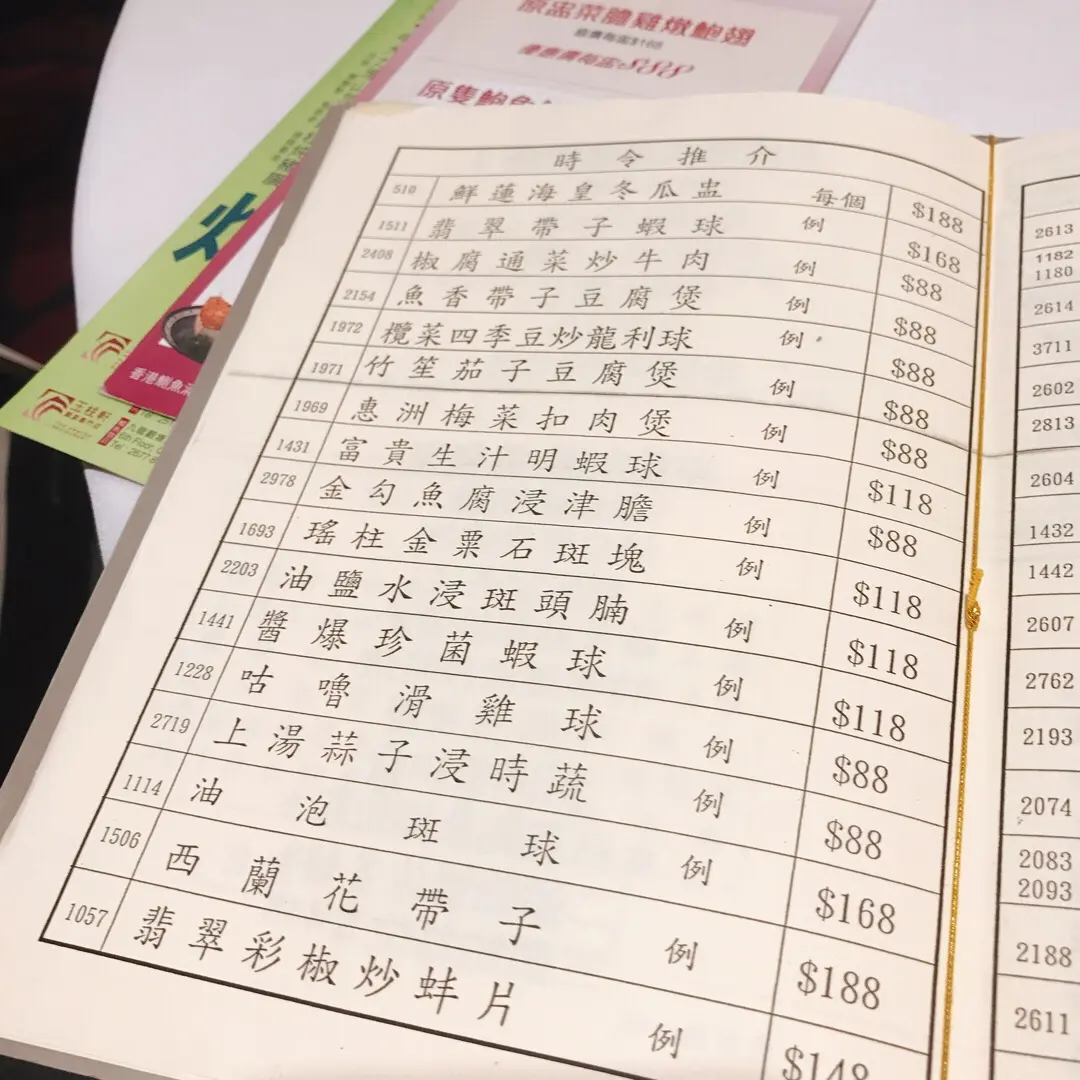 原盅菜膽雞燉鮑翅
優惠價每盅
原隻鮑魚
香港鮑魚
玉桂軒
時令推介
510 鮮蓮海皇冬瓜盅 每個 $188
1511 翡翠帶子蝦球 例 $168
2408 椒腐通菜炒牛肉 例 $88
2154 魚香帶子豆腐煲 例 $88
1972 欖菜四季豆炒龍利球 例 $88
1971 竹笙茄子豆腐煲 例 $88
1969 惠洲梅菜扣肉煲 例 $88
1431 富貴生汁明蝦球 例 $118
2978 金勾魚腐浸津膽 例 $88
1693 瑤柱金粟石斑塊 例 $118
2203 油鹽水浸斑頭腩 例 $118
1441 醬爆珍菌蝦球 例 $118
1228 咕嚕滑雞球 例 $88
2719 上湯蒜子浸時蔬 例 $88
1114 油泡斑球 例 $168
1506 西蘭花帶子 例 $188
1057 翡翠彩椒炒蚌片 例 $148
2613
1182
1180
2614
3711
2602
2813
2604
1432
1442
2607
2762
2193
2074
2083
2093
2188
2611